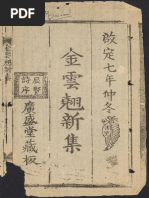 啓定七年仲冬
金雲翹新集
廣盛堂藏板